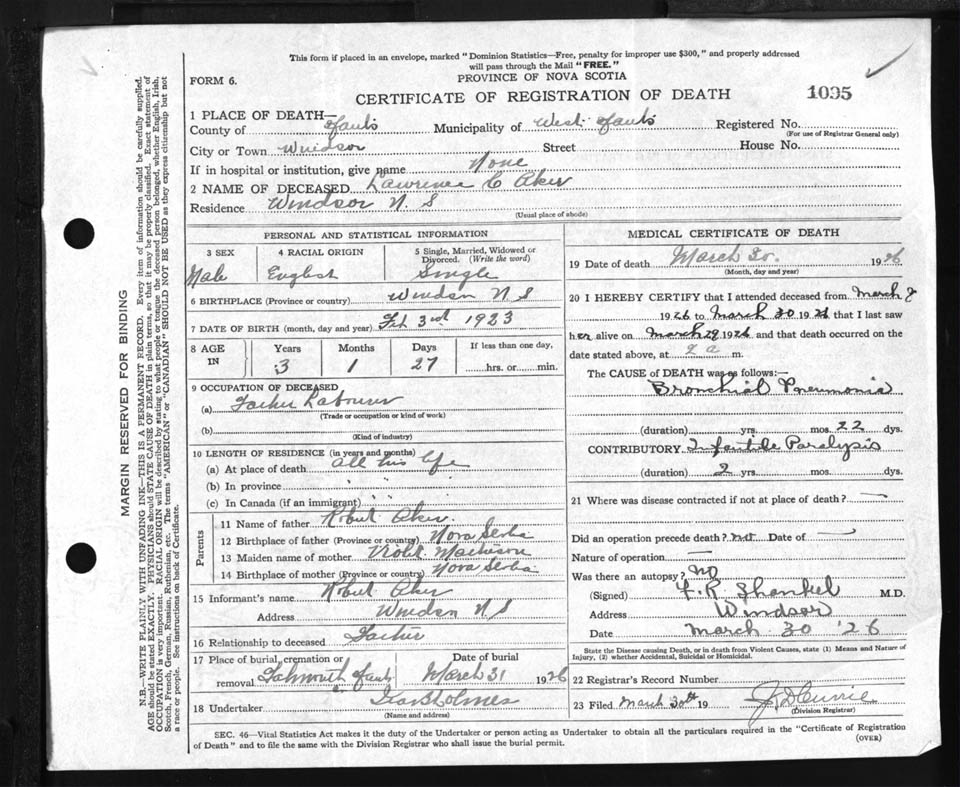 This form if placed in an envelope, marked "Dominion Statistics—Free, penalty for improper use $300," and properly addressed
will pass through the Mail "FREE."
FORM 6.
PROVINCE OF NOVA SCOTIA
CERTIFICATE OF REGISTRATION OF DEATH
1095
1 PLACE OF DEATH—
County of Hants Municipality of West Hants Registered No.
(For use of Registrar General only)
City or Town Windsor Street House No.
If in hospital or institution, give name None
2 NAME OF DECEASED Lawrence C Aker
Residence Windsor N. S
(Usual place of abode)
PERSONAL AND STATISTICAL INFORMATION
3 SEX 4 RACIAL ORIGIN 5 Single, Married, Widowed or
Divorced. (Write the word)
Male English Single
6 BIRTHPLACE (Province or country) Windsor N S
7 DATE OF BIRTH (month, day and year) Feb 3rd 1923
8 AGE
IN
Years Months Days If less than one day,
3 1 27 hrs. or min.
9 OCCUPATION OF DECEASED
(a) Father Labourer
(Trade or occupation or kind of work)
(b)
(Kind of industry)
10 LENGTH OF RESIDENCE (in years and months)
(a) At place of death all his life
(b) In province " " "
(c) In Canada (if an immigrant) " " "
Parents
11 Name of father Robert Aker.
12 Birthplace of father (Province or country) Nova Scotia
13 Maiden name of mother Violet
14 Birthplace of mother (Province or country) Nova Scotia
15 Informant's name Robert Aker
Address Windsor N. S
16 Relationship to deceased Father
17 Place of burial, cremation or Date of burial
removal Falmouth Hants March 31 1926
18 Undertaker Holmes
(Name and address)
MEDICAL CERTIFICATE OF DEATH
19 Date of death March 30. 1926
(Month, day and year)
20 I HEREBY CERTIFY that I attended deceased from March
1926 to March 30 1926 that I last saw
her alive on March 29 1926 and that death occurred on the
date stated above, at 2 a m.
The CAUSE of DEATH was as follows:—
Bronchial Pneumonia
(duration) yrs. mos. 22 dys.
CONTRIBUTORY Infantile Paralysis
(duration) 2 yrs. mos. dys.
21 Where was disease contracted if not at place of death? —
Did an operation precede death? not Date of —
Nature of operation —
Was there an autopsy? no
(Signed) F. R Shankel M.D.
Address Windsor
Date March 30 '26
State the Disease causing Death, or in death from Violent Causes, state (1) Means and Nature of
Injury, (2) whether Accidental, Suicidal or Homicidal.
22 Registrar's Record Number
23 Filed March 30th 19 J D Currie
(Division Registrar)
SEC. 46—Vital Statistics Act makes it the duty of the Undertaker or person acting as Undertaker to obtain all the particulars required in the "Certificate of Registration
of Death" and to file the same with the Division Registrar who shall issue the burial permit.
(OVER)
MARGIN RESERVED FOR BINDING
N.B.—WRITE PLAINLY WITH UNFADING INK—THIS IS A PERMANENT RECORD. Every item of information should be carefully supplied.
AGE should be stated EXACTLY. PHYSICIANS should STATE CAUSE OF DEATH in plain terms, so that it may be properly classified. Exact statement of
OCCUPATION is very important. RACIAL ORIGIN will be described by stating to what people or tongue the deceased person belonged, whether English, Irish,
Scotch, French, German, Russian, Ruthenian, etc. The terms "AMERICAN" or "CANADIAN" SHOULD NOT BE USED as they express citizenship but not
a race or people. See instructions on back of Certificate.